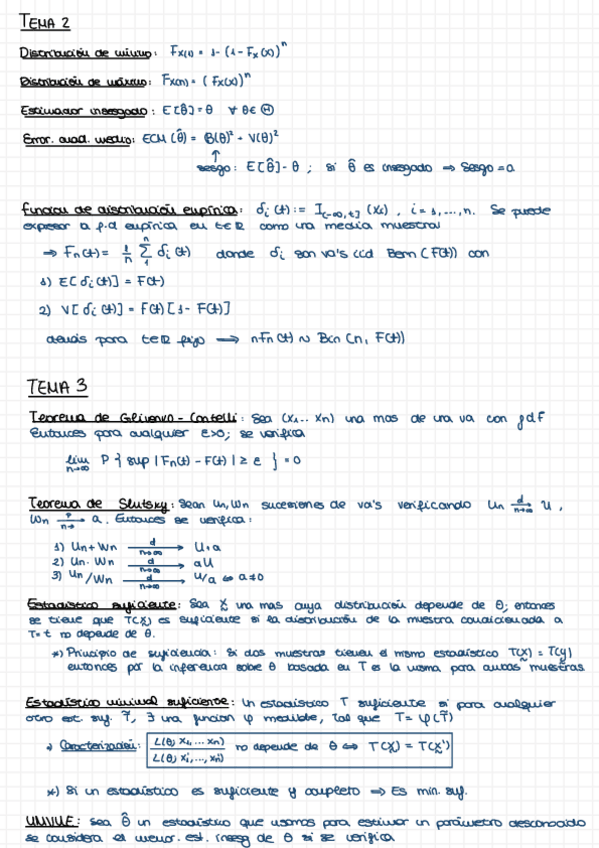 TEMA 2
Distribución de mínimo: F_X(1) = 1 - (1 - F_X(x))^n
Distribución de máximo: F_X(n) = (F_X(x))^n
Estimador insesgado: E[θ̂] = θ ∀ θ ∈ Θ
Error. cuad. medio: ECM(θ̂) = B(θ)² + V(θ)²
↑
sesgo: E[θ̂] - θ ; si θ̂ es insesgado ⇒ Sesgo = 0
Función de distribución empírica: δi(t) := I(-∞, t] (Xi), i = 1, ..., n. Se puede
expresar la f.d empírica en t∈ℝ como una media muestral
⇒ Fn(t) = 1/n Σ_1^n δi(t) donde δi son va's iid Bern(F(t)) con
1) E[δi(t)] = F(t)
2) V[δi(t)] = F(t)[1 - F(t)]
además para t∈ℝ fijo ⟹ nFn(t) ~ Bin(n, F(t))
TEMA 3
Teorema de Glivenko - Cantelli: Sea (X1...Xn) una mas de una va con fdF
Entonces para cualquier ε>0; se verifica
lim n→∞ P{ sup |Fn(t) - F(t)| ≥ ε } = 0
Teorema de Slutsky: Sean Un, Wn sucesiones de va's verificando Un d→ n→∞ U,
Wn P→ n→ a. Entonces se verifica:
1) Un + Wn d→ n→∞ U + a
2) Un · Wn d→ n→∞ aU
3) Un/Wn d→ n→∞ U/a ⇔ a≠0
Estadístico suficiente: Sea X̰ una mas cuya distribución depende de θ; entonces
se tiene que T(X̰) es suficiente si la distribución de la muestra condicionada a
T=t no depende de θ.
*) Principio de suficiencia: Si dos muestras tienen el mismo estadístico T(x̰) = T(y̰)
entonces por la inferencia sobre θ basada en T es la misma para ambas muestras
Estadístico minimal suficiente: Un estadístico T suficiente si para cualquier
otro est. suf. T̃, ∃ una función φ medible, tal que T = φ(T̃)
→ Caracterización: L(θ; x1, ... xn) / L(θ; x1', ..., xn') no depende de θ ⇔ T(X̰) = T(X̰')
*) Si un estadístico es suficiente y completo ⇒ Es min. suf.
UMVUE: Sea θ̂ un estadístico que usamos para estimar un parámetro desconocido
se considera el menor. est. insesg de θ si se verifica